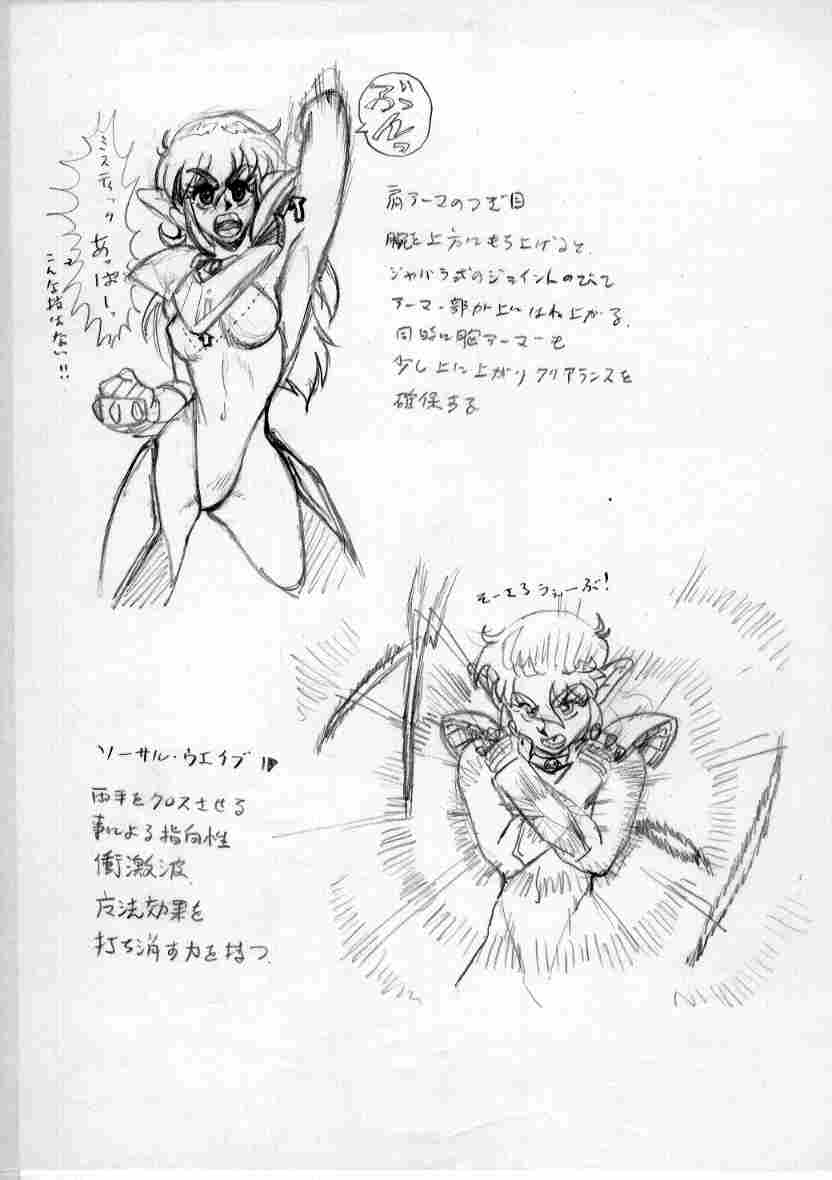 ミスティック
あっぱーっ
こんな指はない!!
肩アーマのつぎ目
腕を上方にもち上げると、
ジャバラ式のジョイントのびて
アーマー部が上にはね上がる。
同時に胸アーマーも
少し上に上がりクリアランスを
確保する
そーさるうぇーぶ!
ソーサル・ウエイブ
両手をクロスさせる
事による指向性
衝激波
魔法効果を
打ち消す力を持つ。